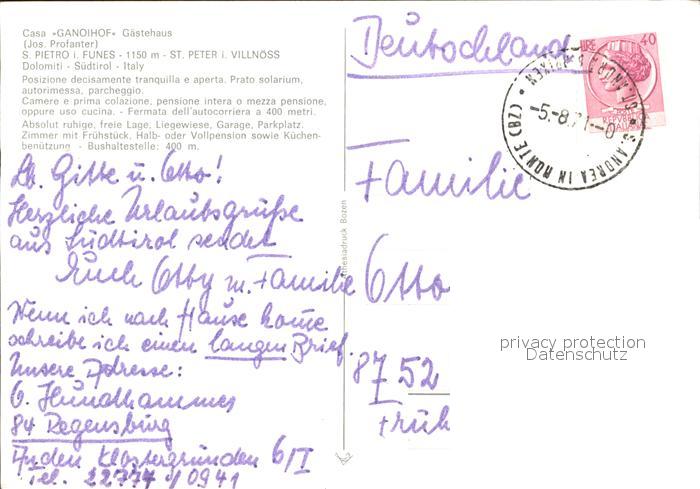 Casa »GANOIHOF« Gästehaus
(Jos. Profanter)
S. PIETRO i. FUNES - 1150 m - ST. PETER i. VILLNÖSS
Dolomiti - Südtirol - Italy
Posizione decisamente tranquilla e aperta. Prato solarium,
autorimessa, parcheggio.
Camere e prima colazione, pensione intera o mezza pensione,
oppure uso cucina. - Fermata dell'autocorriera a 400 metri.
Absolut ruhige, freie Lage, Liegewiese, Garage, Parkplatz.
Zimmer mit Frühstück, Halb- oder Vollpension sowie Küchen-
benützung. - Bushaltestelle: 400 m.
Lb. Gitte u. Otto!
Herzliche Urlaubsgrüße
aus Südtirol sendet
Euch Otty m. Familie
Wenn ich nach Hause kome
schreibe ich einen langen Brief.
Unsere Adresse:
G. Hundhammer
84 Regensburg
An den Klostergründen 6/I
Tel. 22774 / 0941
thesiadruck Bozen
Deutschland
Familie
Otto
8752
Früh
LIRE 40
REPVBBLICA
ITALIANA
S. ANDREA IN MONTE (BZ)
-5.-8.71.-0
privacy protection
Datenschutz